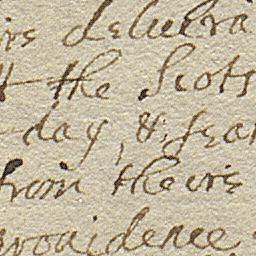 irs delivera
the Scots
day, &
from theire
providence